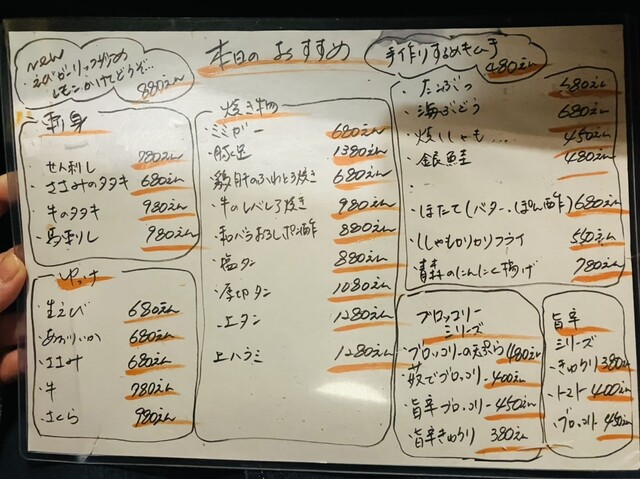 NEW
えびガーリック炒め
レモンかけてどうぞ…
880えん
本日のおすすめ
手作りするめキムチ
480えん
刺身
せん刺し 780えん
ささみのタタキ 680えん
牛のタタキ 980えん
馬刺し 980えん
ユッケ
生えび 680えん
あおりいか 680えん
ささみ 680えん
牛 780えん
さくら 980えん
焼き物
ミミガー 680えん
豚足 1380えん
鶏肝のふわとろ焼き 680えん
牛のレバレア焼き 980えん
和バラおろしポン酢 880えん
塩タン 880えん
厚切タン 1080えん
上タン 1280えん
上ハラミ 1280えん
たこぶつ 480えん
海ぶどう 680えん
焼ししゃも… 450えん
銀鮭 480えん
ほたて(バター、ぽん酢) 680えん
ししゃもカリカリフライ 550えん
青森のにんにく揚げ 780えん
ブロッコリー
シリーズ
ブロッコリーの天ぷら 480えん
茹でブロッコリー 400えん
旨辛ブロッコリー 450えん
旨辛きゅうり 380えん
旨辛
シリーズ
きゅうり 380えん
トマト 400えん
ブロッコリー 450えん